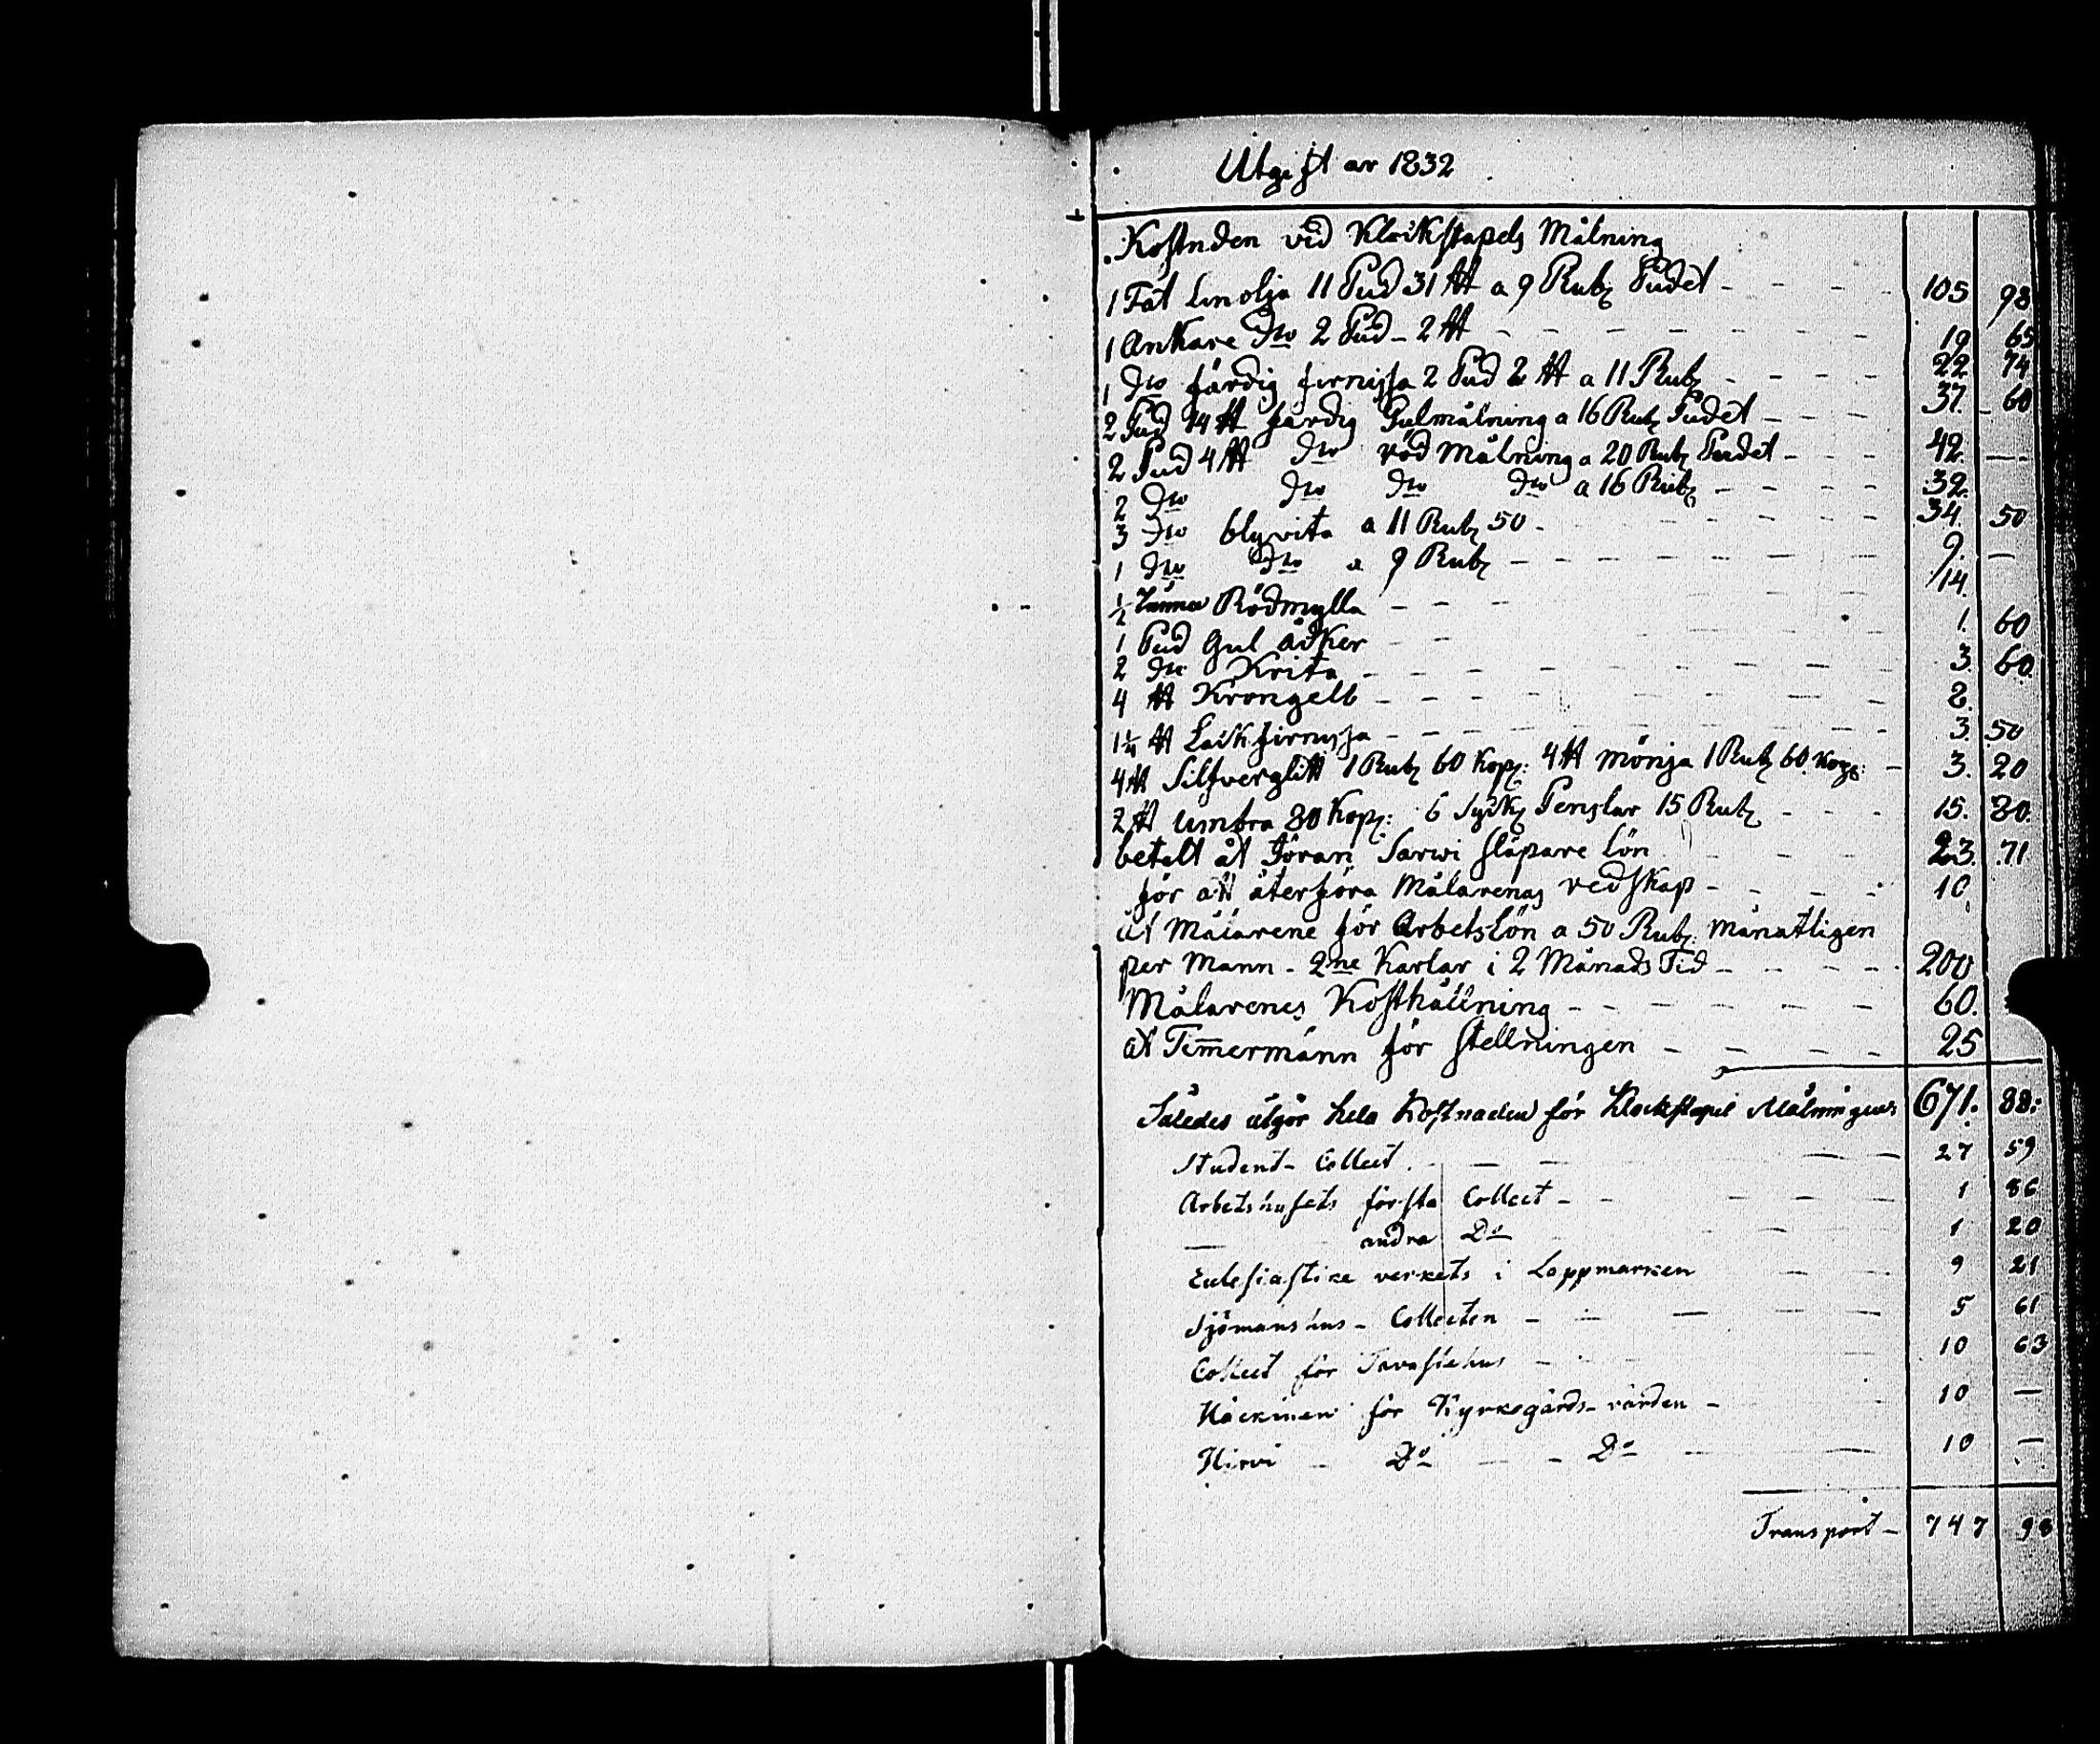 Utgift ar 1832
Kostnden vid Klåckstapels Målning
1 Fat Linolja 11 Pud 31 ℔ a 9 Rub Pudet - - - - 105 98
1 Ankare Dto 2 Pud - 2 ℔ - - - - 19 65
1 Dto färdig firnissa 2 Pud 2 ℔ a 11 Rub - - - - 22 74
2 Pud 14 ℔ färdig Gulmålning a 16 Rub Pudet - - - 37. 60
2 Pud 4 ℔ Dto röd Målning a 20 Rub Pudet - - - 42. —
2 Dto Dto Dto Dto a 16 Rub - - - - 32.
3 Dto blyvita a 11 Rub 50 - - - - 34. 50
1 Dto Dto a 9 Rub - - - - 9. —
½ Tunna Rödmylla - - - 14.
1 Pud Gul ådker - - 1. 60
2 Dto Krita - - - - 3. 60.
4 ℔ Krongelb - - - - 2.
1¼ ℔ Lack firnissa - - - - 3. 50
4 ℔ Silfverglitt 1 Rub 60 Kop: 4 ℔ Mönja 1 Rub 60 Kop: - 3. 20
2 ℔ Umbra 80 Kop: 6 Penslar 15 Rub - - - 15. 80.
betalt åt Jöran Sarwi släpare Lön - - - 23. 71
för att återföra Målarenas redskap - - - 10.
åt Målarene för Arbetslön a 50 Rub: Månatligen
per Mann - 2ne Karlar i 2 Månads Tid - - - - 200
Målarenes Kosthållning - - - - 60.
åt Timmermann för stellningen - - - - 25
Således utgör hela Kostnaden för Klockstapel Målningen 671. 88:
Student- Collect. - - - 27 59
Arbetshusets första Collect - - - 1 86
— andra Do 1 20
Ecclesiastike verkets i Lappmarken - - 9 21
Sjömanshus - Collecten - - - 5 61
Collect för Tavastehus - - 10 63
för Kyrkogårds-vården - 10 —
Hirvi - Do - - Do - - 10 —
Transport - 747 98